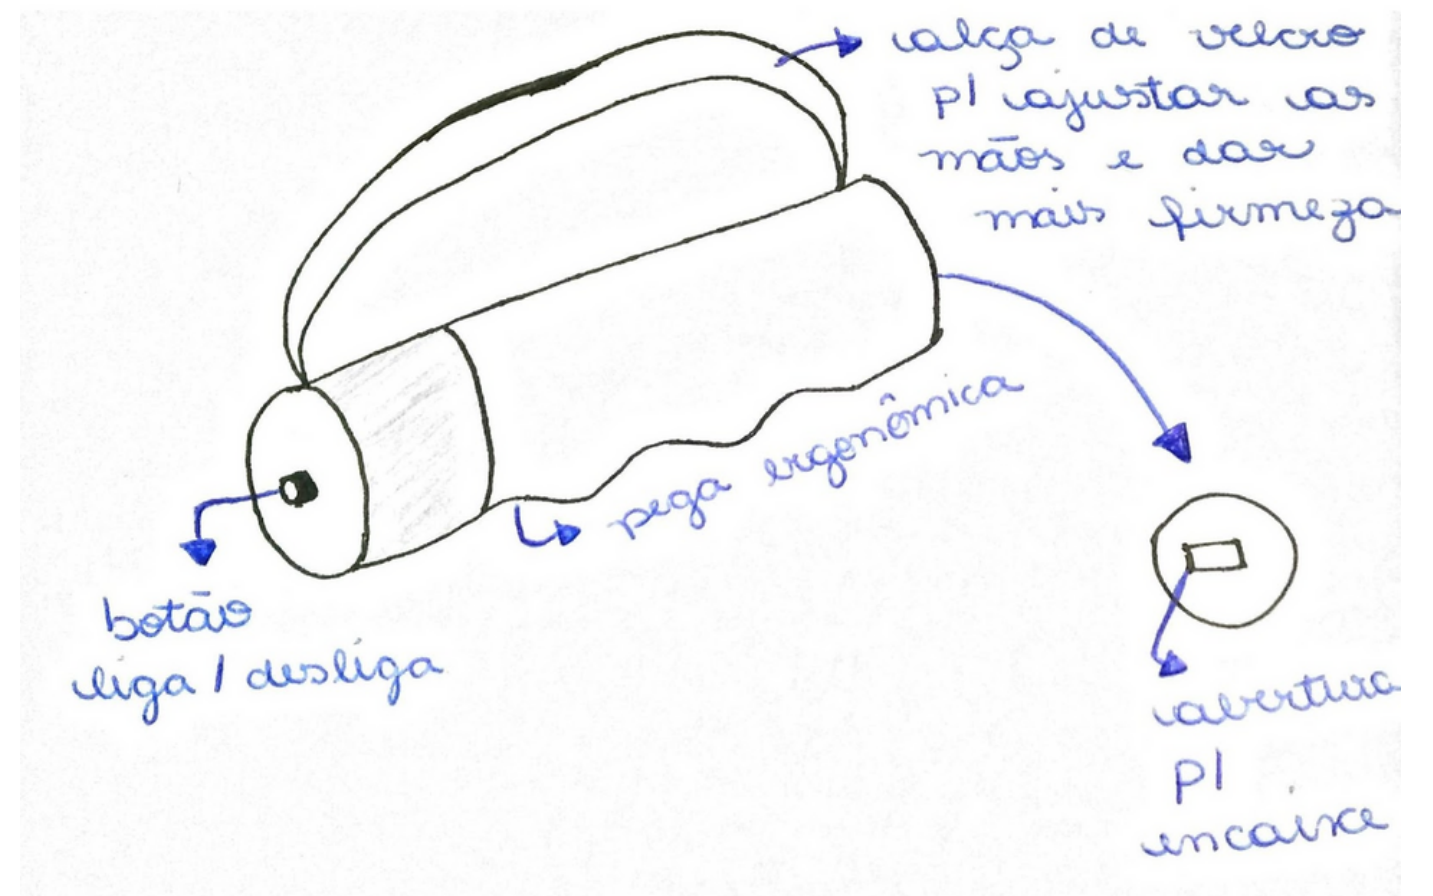 alça de velcro
p/ ajustar as
mãos e dar
mais firmeza
pega ergonômica
botão
liga / desliga
abertura
p/
encaixe